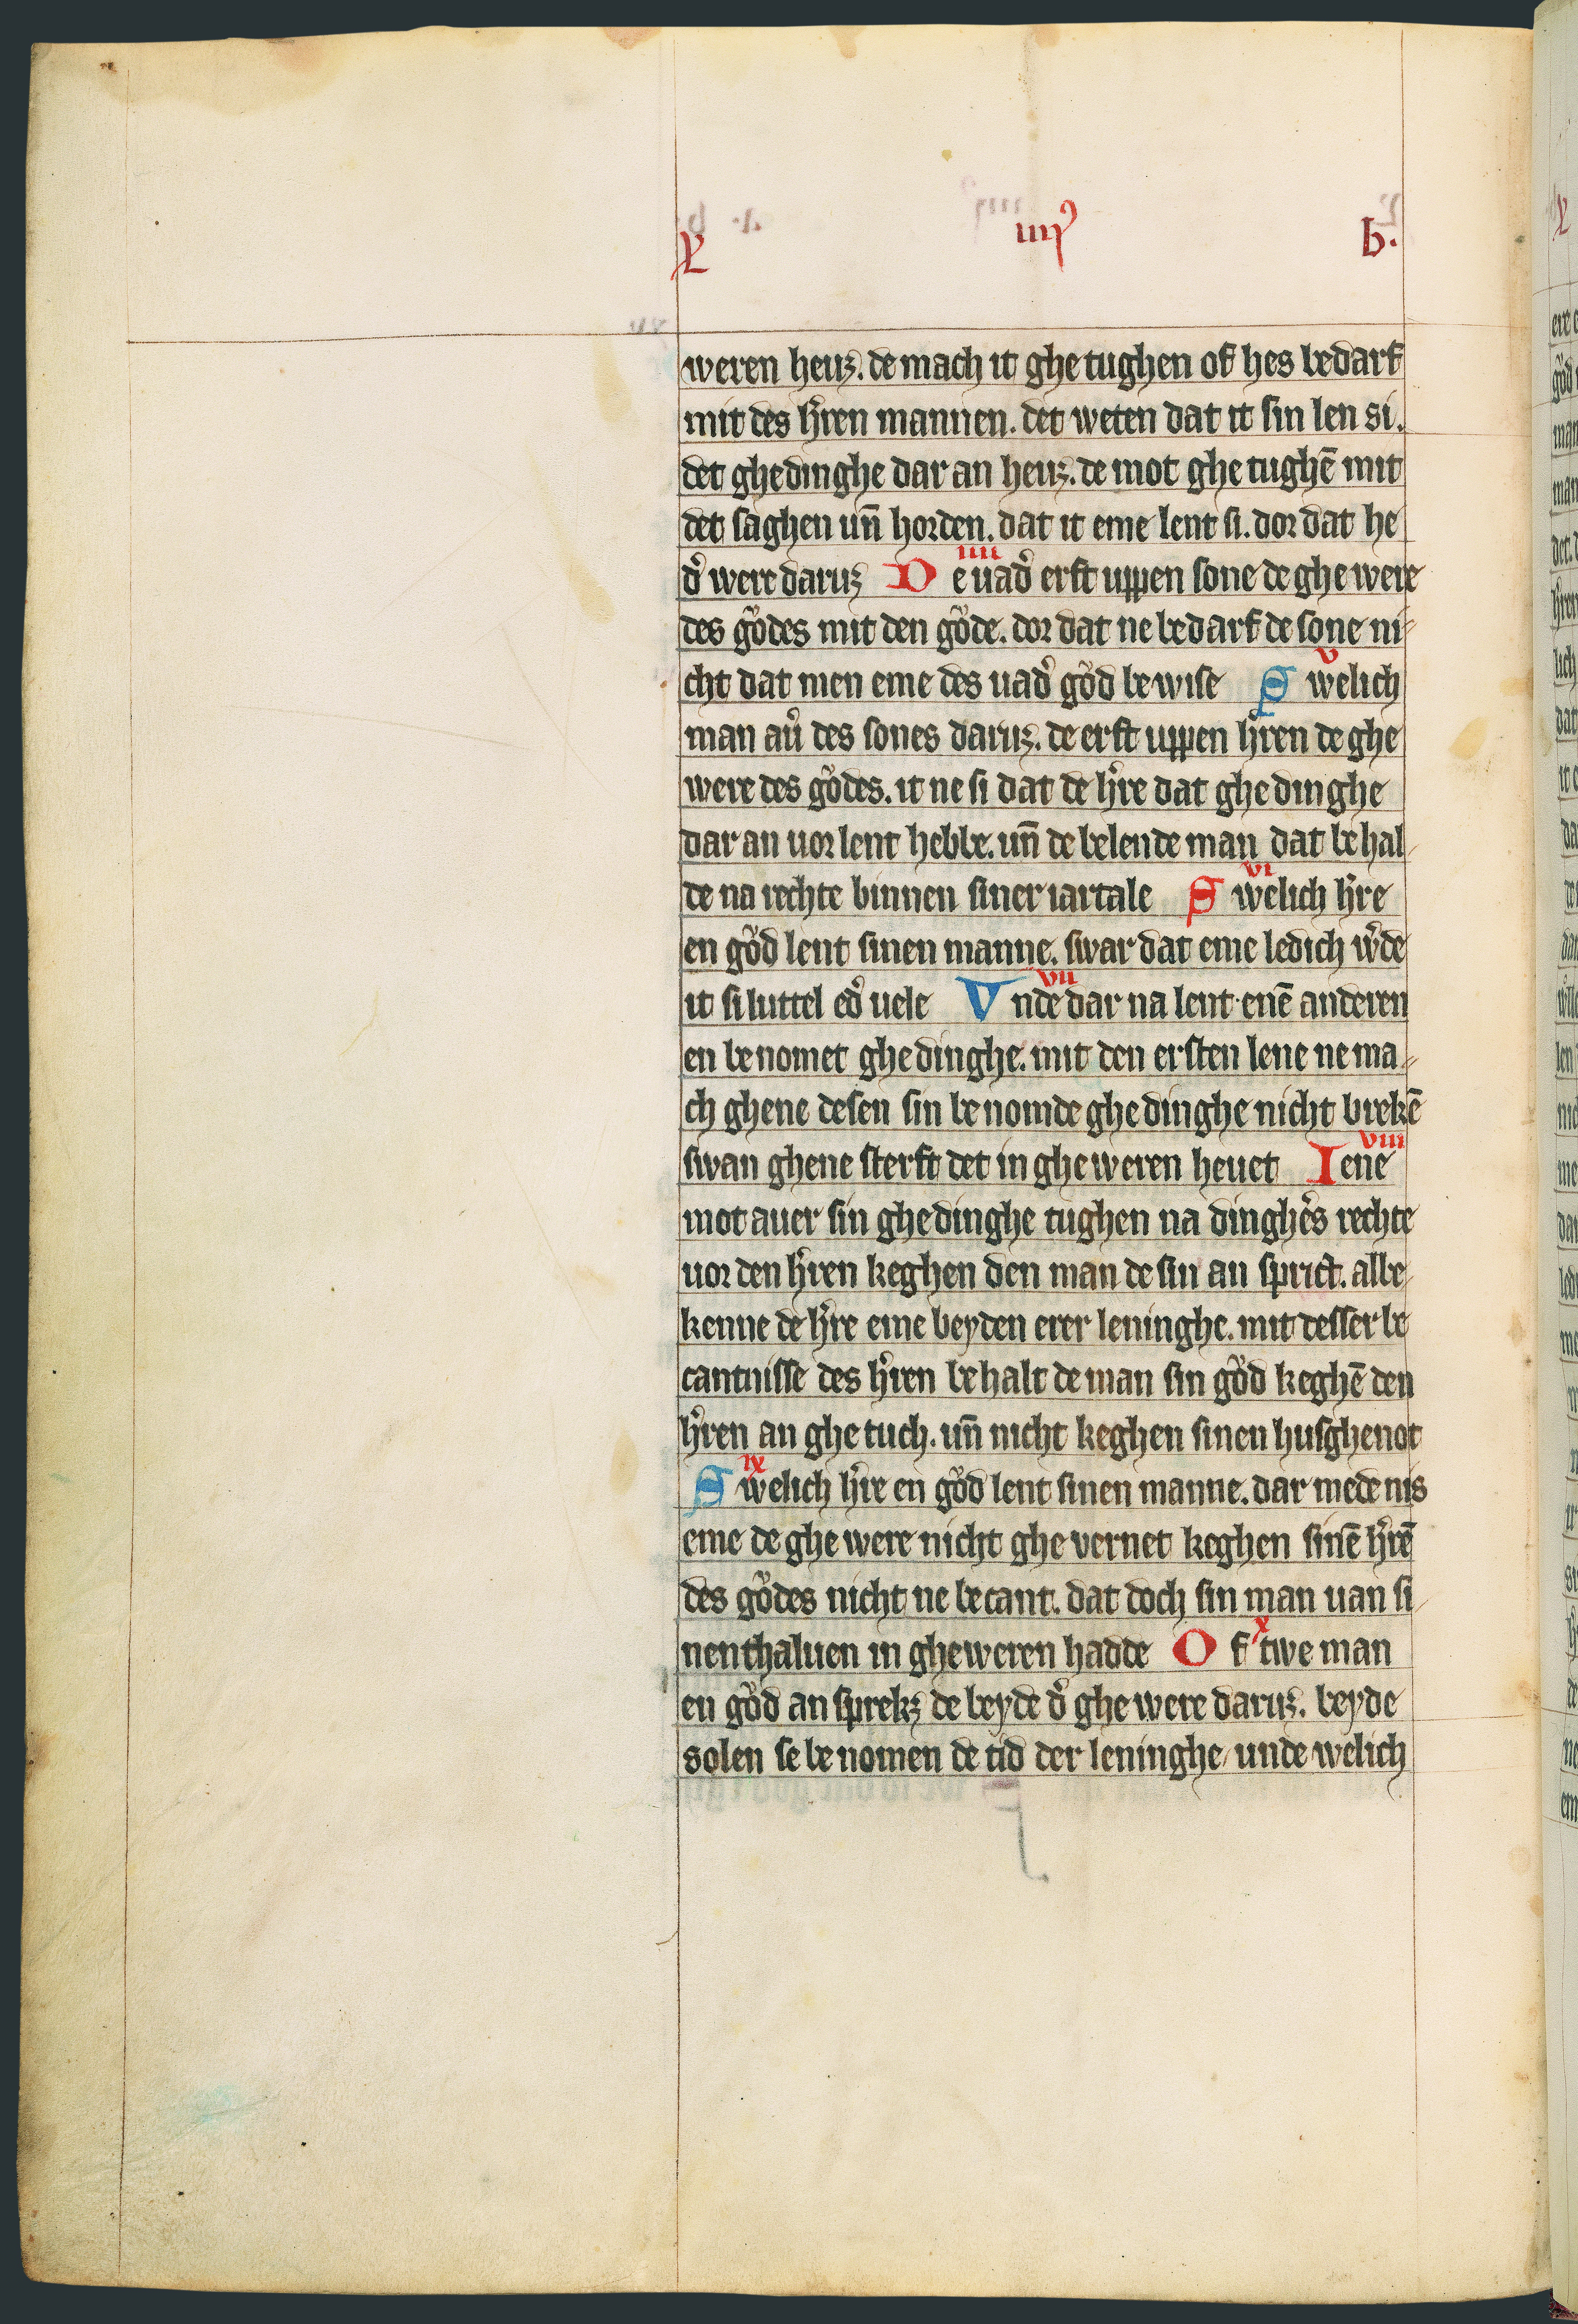 X iiij b.
weren heuꝫ. de mach it ghe tughen of hes bedarf
mit des hͤren mannen. det weten dat it sin len si.
det ghedinghe dar an heuꝫ. de mot ghe tughē mit
det saghen un̄ horden. dat it eme lent si. dor dat he
dͤ were daruꝫ iiii De uadͤ erft uppen sone de ghe were
des gͦodes mit den gͦode. dor dat ne bedarf de sone ni-
cht dat men eme des uadͤ gͦod bewise v Swelich
man auͤ des sones daruꝫ. de erft uppen hͤren de ghe
were des gͦodes. it ne si dat de hͤre dat ghe dinghe
dar an uor lent hebbe. un̄ de belende man dat behal-
de na rechte binnen siner iartale vi Swelich hͤre
en gͦod lent sinen manne. swar dat eme ledich wͤde
it si luttel edͤ uele vii Vnde dar na lent enē anderen
en benomet ghe dinghe. mit den ersten lene ne ma-
ch ghene desen sin benomde ghe dinghe nicht brekē
swan ghene sterft det in gheweren heuet viii Iene
mot auer sin ghe dinghe tughen na dinghēs rechte
uor den hͤren keghen den man de sin an sprict. albe-
kenne de hͤre eme beyden erer leninghe. mit desser be
cantnisse des hͤren behalt de man sin gͦod keghē den
hͤren an ghe tuch. un̄ nicht keghen sinen husghenot
ix Swelich hͤre en gͦod lent sinen manne. dar mede nis
eme de ghe were nicht ghe vernet keghen sinē hͤrē
des gͦodes nicht ne becant. dat doch sin man uan si-
nenthaluen in gheweren hadde x Of twe man
en gͦod an sprekꝫ de beyde dͤ ghe were daruꝫ. beyde
solen se be nomen de tid der leninghe unde welich